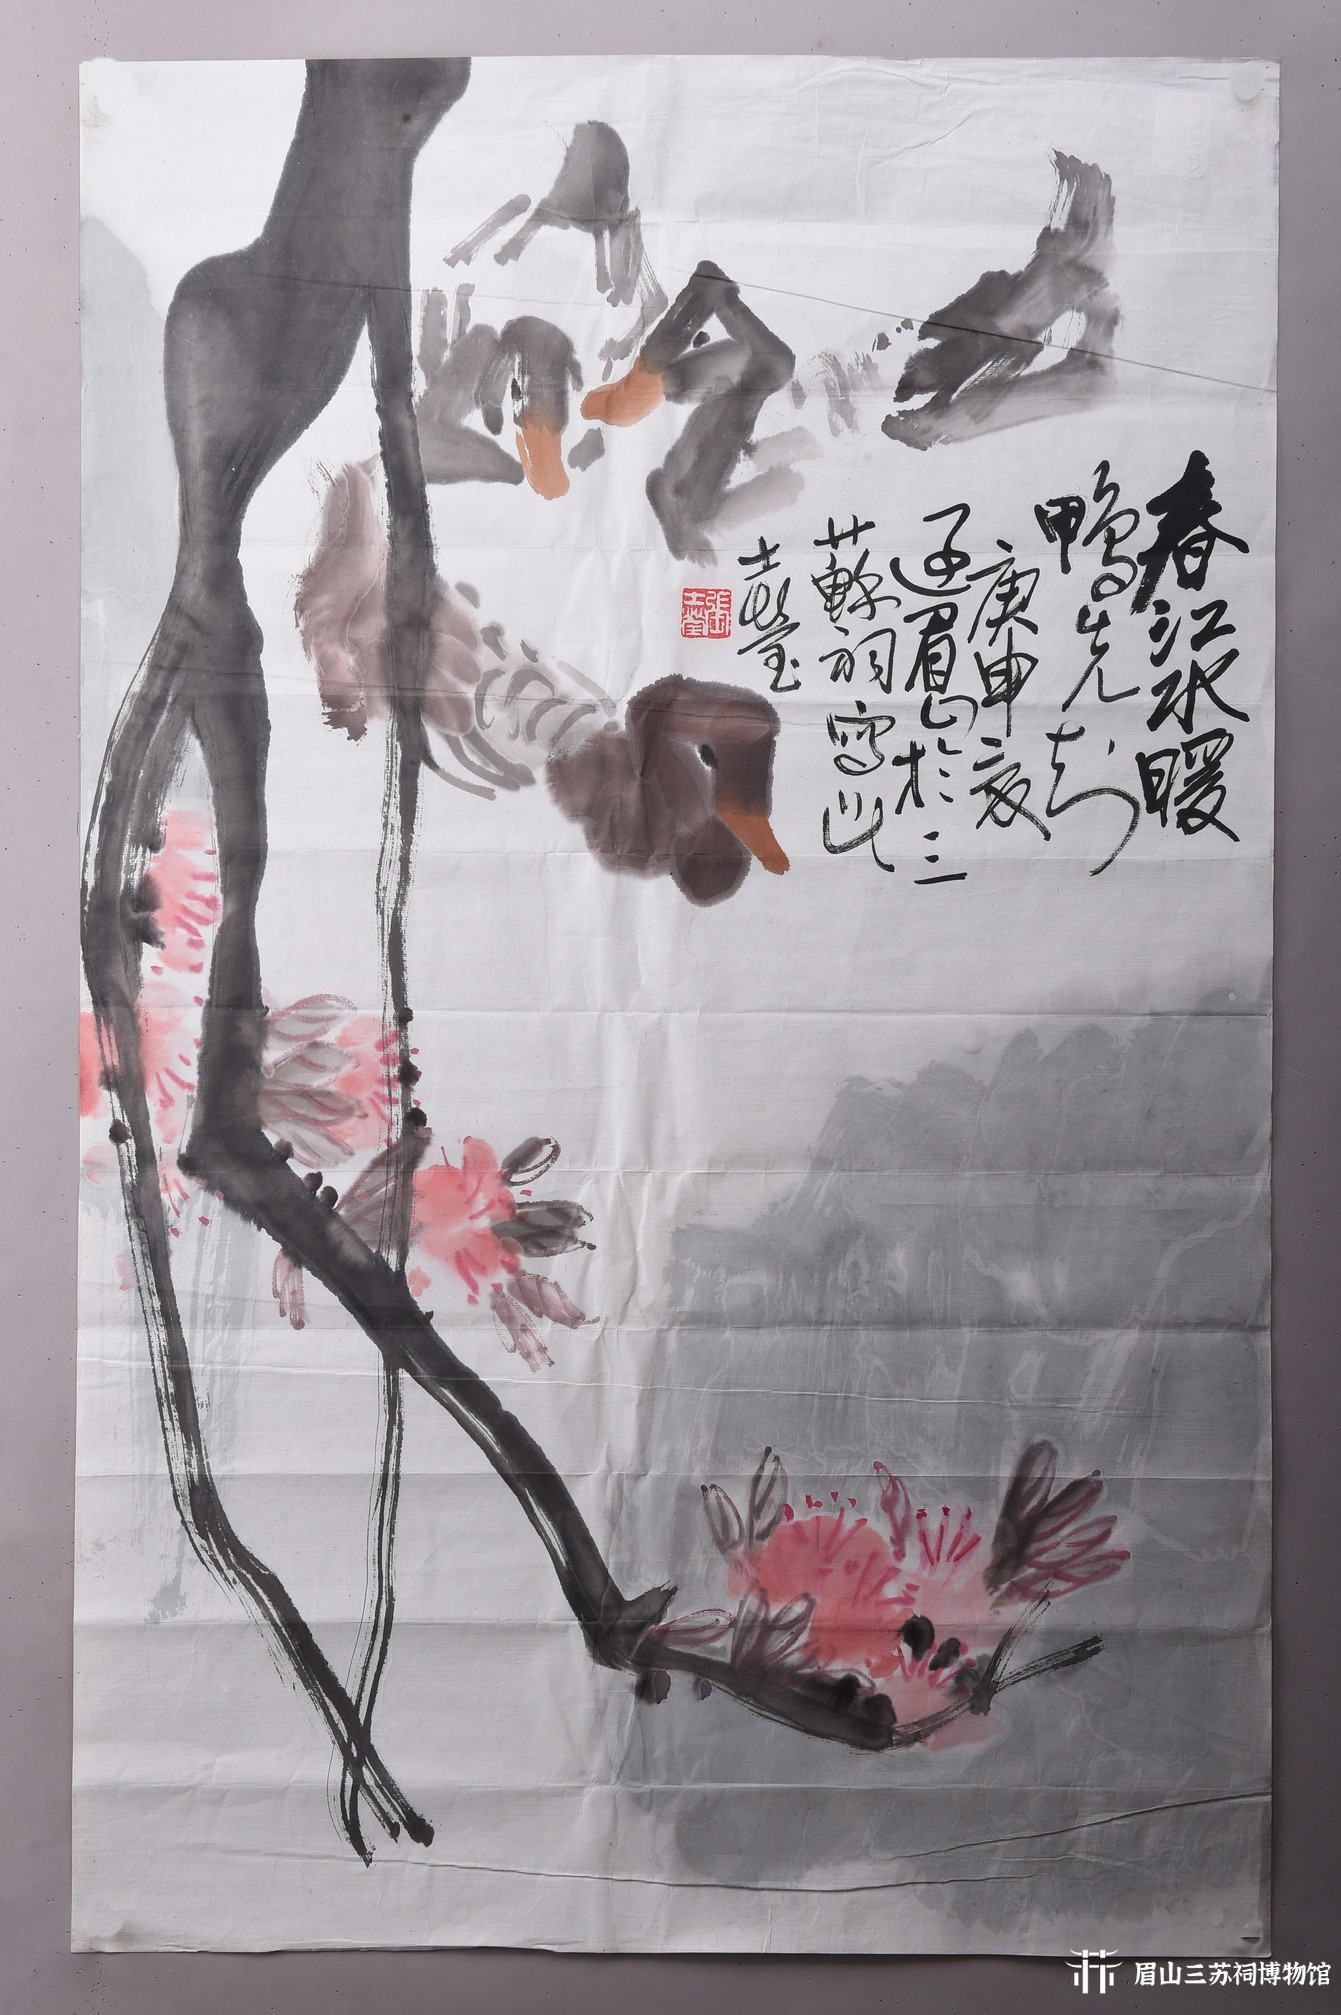 春江水暖
鸭先知
庚申
眉山於三
蘇祠寫此
士莹
張士莹
眉山三苏祠博物馆